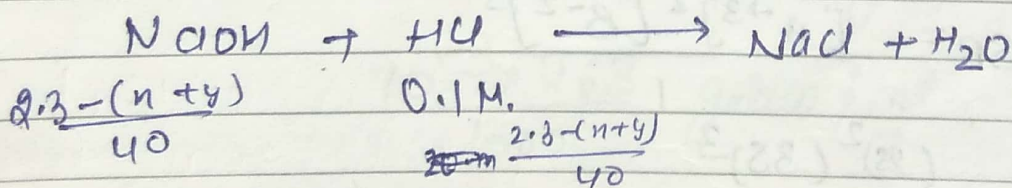 NaOH + HCl ⟶ NaCl + H₂O
2.3-(x+y)/40 0.1M.
2.3-(x+y)/40